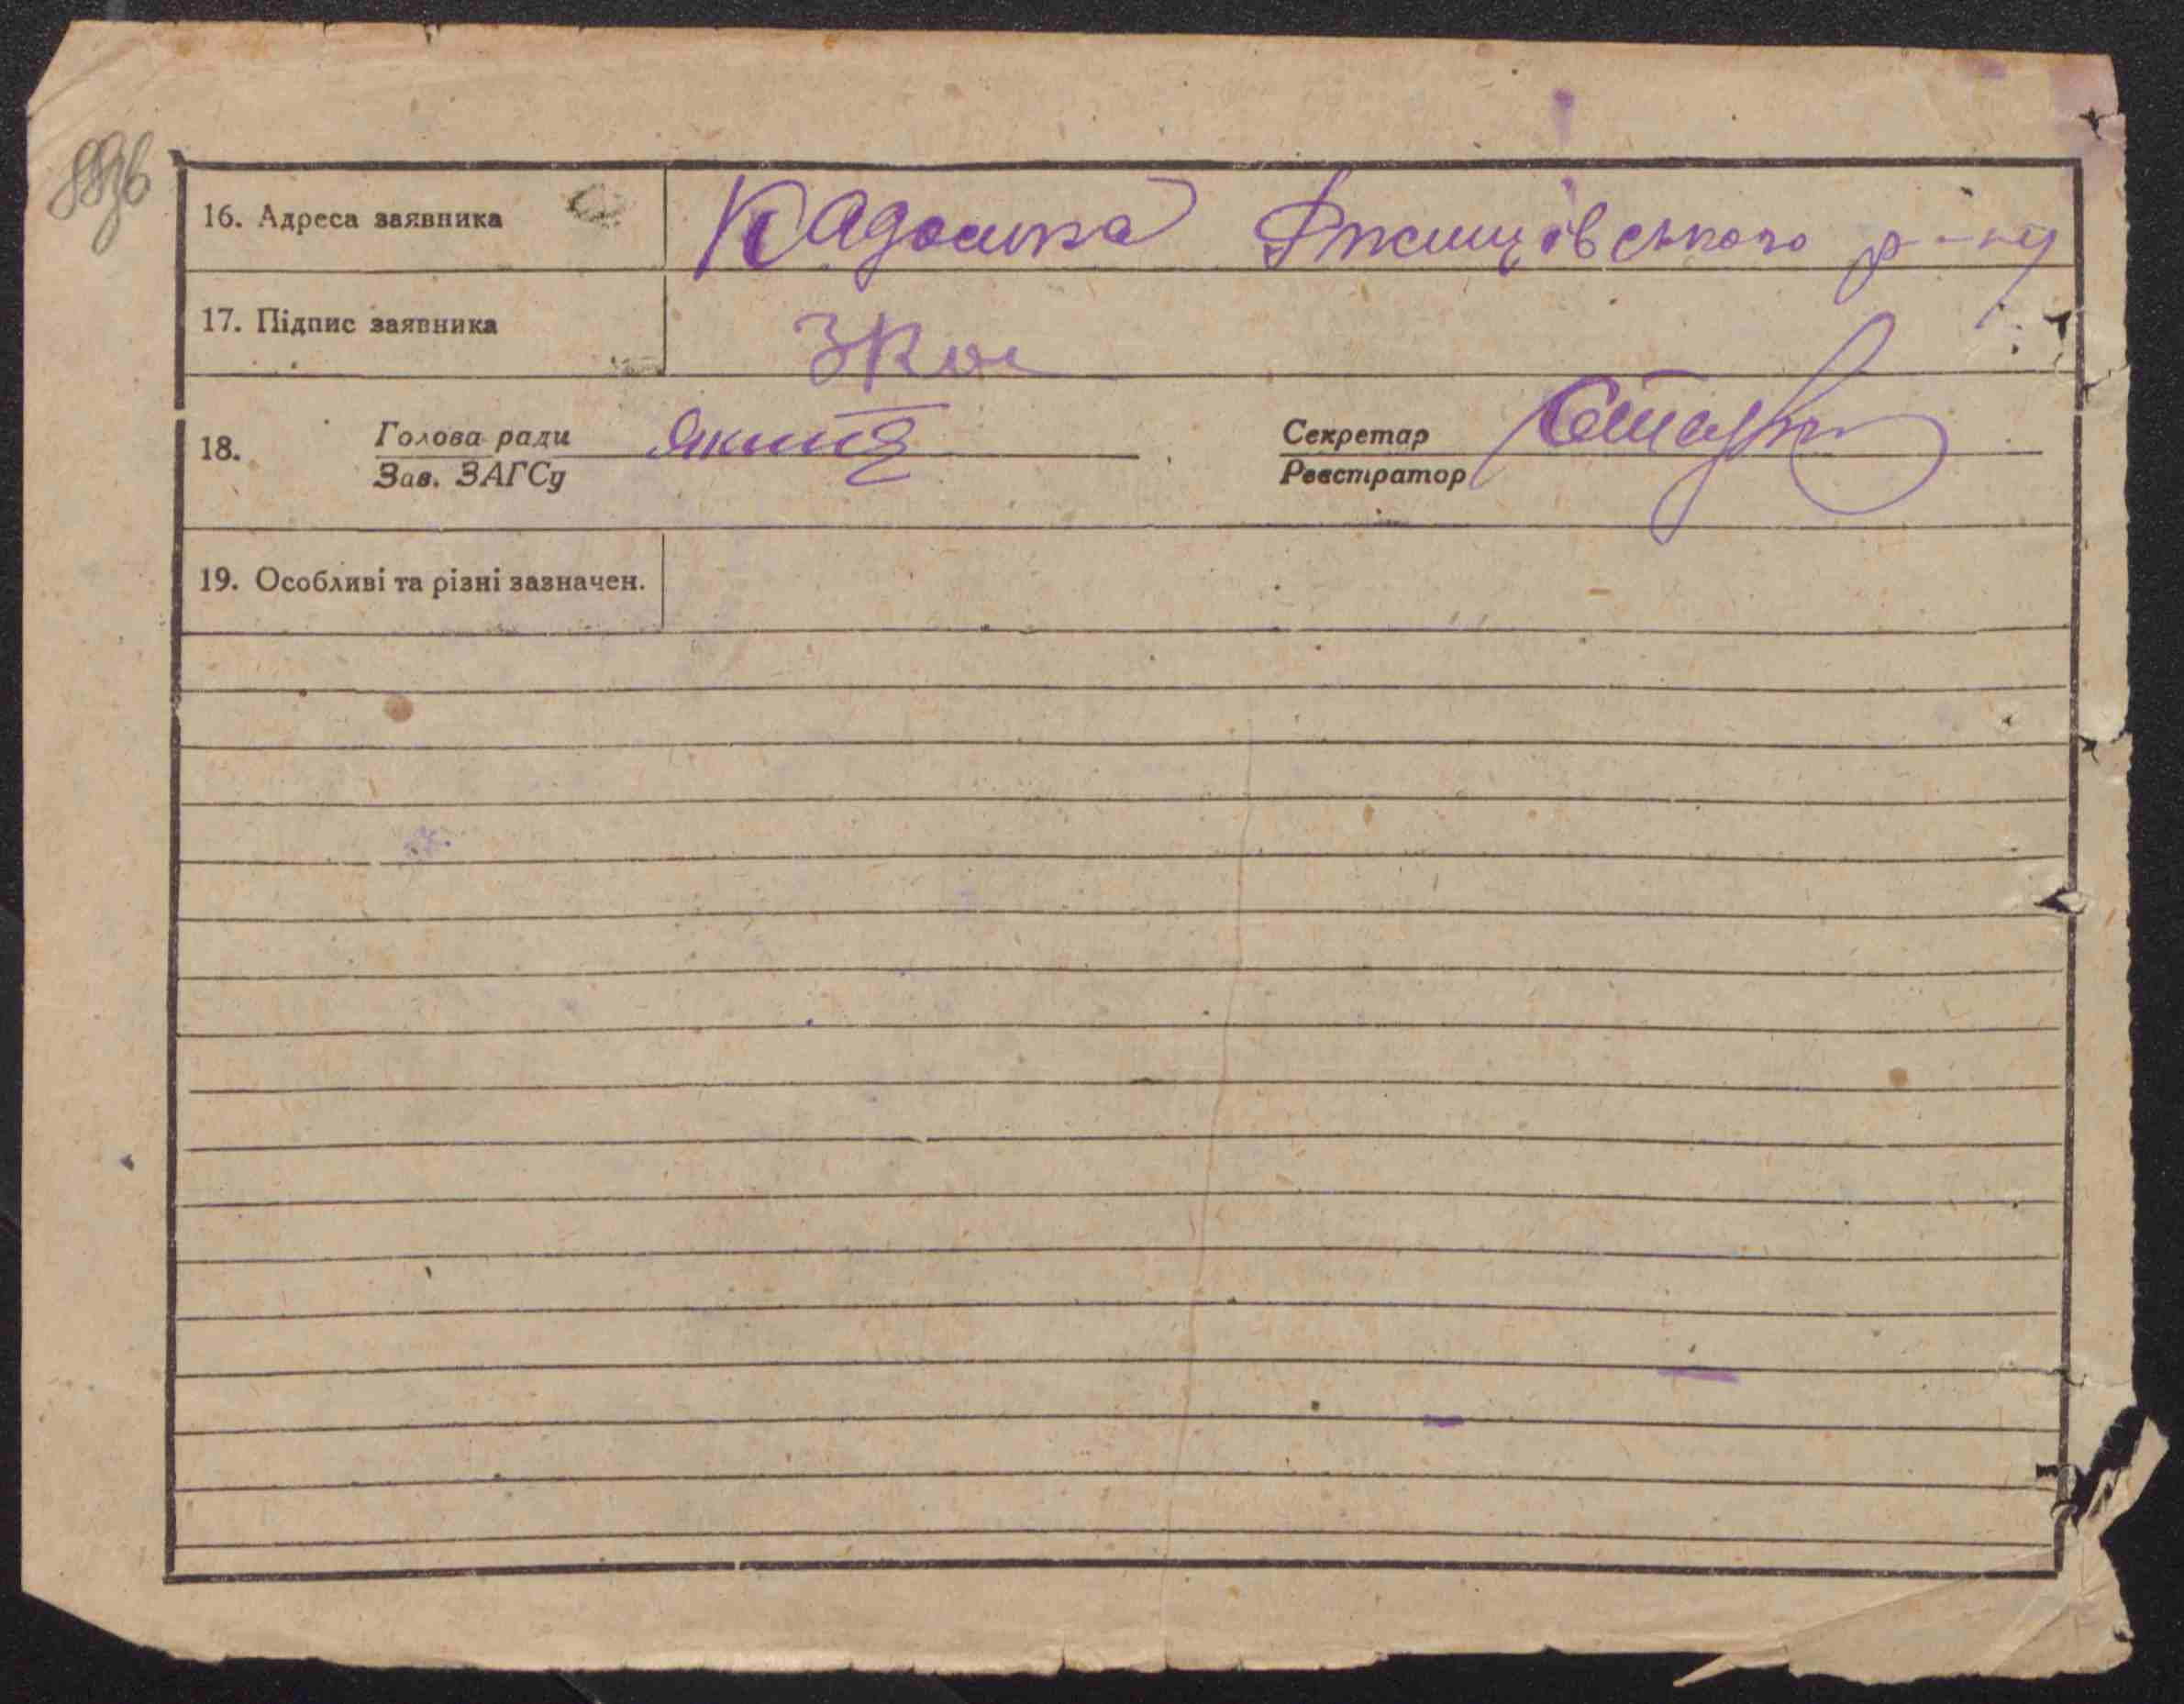 16. Адреса заявника Кадомка Ржищівського р-ну
17. Підпис заявника
18. Голова ради Секретар
Зав. ЗАГСу Реєстратор
19. Особливі та різні зазначен.